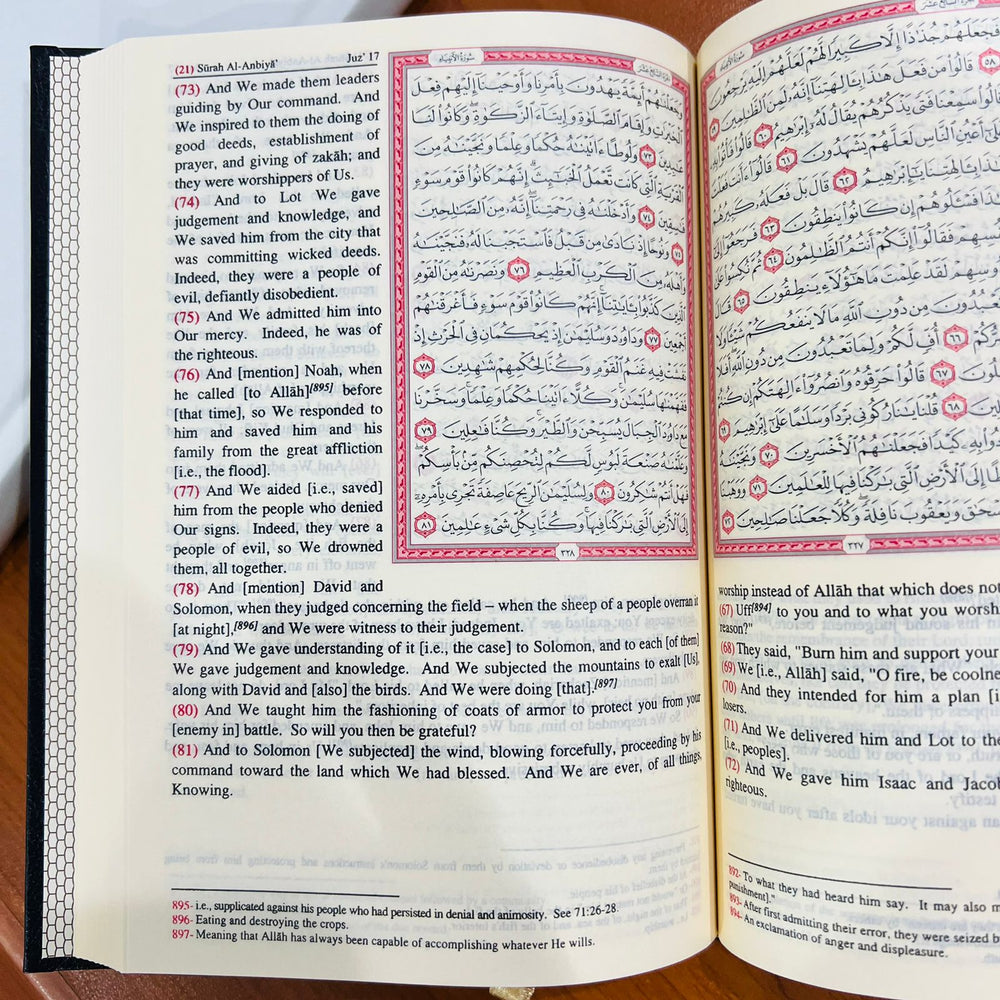 (21) Sūrah Al-Anbiyā' Juz' 17
(73) And We made them leaders
guiding by Our command. And
We inspired to them the doing of
good deeds, establishment of
prayer, and giving of zakāh; and
they were worshippers of Us.
(74) And to Lot We gave
judgement and knowledge, and
We saved him from the city that
was committing wicked deeds.
Indeed, they were a people of
evil, defiantly disobedient.
(75) And We admitted him into
Our mercy. Indeed, he was of
the righteous.
(76) And [mention] Noah, when
he called [to Allāh][895] before
[that time], so We responded to
him and saved him and his
family from the great affliction
[i.e., the flood].
(77) And We aided [i.e., saved]
him from the people who denied
Our signs. Indeed, they were a
people of evil, so We drowned
them, all together.
(78) And [mention] David and
Solomon, when they judged concerning the field – when the sheep of a people overran it
[at night],[896] and We were witness to their judgement.
(79) And We gave understanding of it [i.e., the case] to Solomon, and to each [of them]
We gave judgement and knowledge. And We subjected the mountains to exalt [Us],
along with David and [also] the birds. And We were doing [that].[897]
(80) And We taught him the fashioning of coats of armor to protect you from your
[enemy in] battle. So will you then be grateful?
(81) And to Solomon [We subjected] the wind, blowing forcefully, proceeding by his
command toward the land which We had blessed. And We are ever, of all things,
Knowing.
895- i.e., supplicated against his people who had persisted in denial and animosity. See 71:26-28.
896- Eating and destroying the crops.
897- Meaning that Allāh has always been capable of accomplishing whatever He wills.
سُورَةُ الأَنبِيَاءِ الجزء السابع عشر
وَجَعَلْنَٰهُمْ أَئِمَّةً يَهْدُونَ بِأَمْرِنَا وَأَوْحَيْنَآ إِلَيْهِمْ فِعْلَ
ٱلْخَيْرَٰتِ وَإِقَامَ ٱلصَّلَوٰةِ وَإِيتَآءَ ٱلزَّكَوٰةِ وَكَانُوا۟ لَنَا
عَٰبِدِينَ ٧٣ وَلُوطًا ءَاتَيْنَٰهُ حُكْمًا وَعِلْمًا وَنَجَّيْنَٰهُ مِنَ
ٱلْقَرْيَةِ ٱلَّتِى كَانَت تَّعْمَلُ ٱلْخَبَٰٓئِثَ إِنَّهُمْ كَانُوا۟ قَوْمَ سَوْءٍ
فَٰسِقِينَ ٧٤ وَأَدْخَلْنَٰهُ فِى رَحْمَتِنَآ إِنَّهُۥ مِنَ ٱلصَّٰلِحِينَ
٧٥ وَنُوحًا إِذْ نَادَىٰ مِن قَبْلُ فَٱسْتَجَبْنَا لَهُۥ فَنَجَّيْنَٰهُ
وَأَهْلَهُۥ مِنَ ٱلْكَرْبِ ٱلْعَظِيمِ ٧٦ وَنَصَرْنَٰهُ مِنَ ٱلْقَوْمِ
ٱلَّذِينَ كَذَّبُوا۟ بِـَٔايَٰتِنَآ إِنَّهُمْ كَانُوا۟ قَوْمَ سَوْءٍ فَأَغْرَقْنَٰهُمْ
أَجْمَعِينَ ٧٧ وَدَاوُۥدَ وَسُلَيْمَٰنَ إِذْ يَحْكُمَانِ فِى ٱلْحَرْثِ إِذْ
نَفَشَتْ فِيهِ غَنَمُ ٱلْقَوْمِ وَكُنَّا لِحُكْمِهِمْ شَٰهِدِينَ ٧٨
فَفَهَّمْنَٰهَا سُلَيْمَٰنَ وَكُلًّا ءَاتَيْنَا حُكْمًا وَعِلْمًا وَسَخَّرْنَا
مَعَ دَاوُۥدَ ٱلْجِبَالَ يُسَبِّحْنَ وَٱلطَّيْرَ وَكُنَّا فَٰعِلِينَ ٧٩
وَعَلَّمْنَٰهُ صَنْعَةَ لَبُوسٍ لَّكُمْ لِتُحْصِنَكُم مِّنۢ بَأْسِكُمْ
فَهَلْ أَنتُمْ شَٰكِرُونَ ٨٠ وَلِسُلَيْمَٰنَ ٱلرِّيحَ عَاصِفَةً تَجْرِى بِأَمْرِهِۦٓ
إِلَى ٱلْأَرْضِ ٱلَّتِى بَٰرَكْنَا فِيهَا وَكُنَّا بِكُلِّ شَىْءٍ عَٰلِمِينَ ٨١
٣٢٨
سُورَةُ الأَنبِيَاءِ الجزء السابع عشر
فَجَعَلَهُمْ جُذَٰذًا إِلَّا كَبِيرًا لَّهُمْ لَعَلَّهُمْ إِلَيْهِ يَرْجِعُونَ
٥٨ قَالُوا۟ مَن فَعَلَ هَٰذَا بِـَٔالِهَتِنَآ إِنَّهُۥ لَمِنَ ٱلظَّٰلِمِينَ
قَالُوا۟ سَمِعْنَا فَتًى يَذْكُرُهُمْ يُقَالُ لَهُۥٓ إِبْرَٰهِيمُ ٦٠ قَالُوا۟ فَأْتُوا۟
أَعْيُنِ ٱلنَّاسِ لَعَلَّهُمْ يَشْهَدُونَ ٦١ قَالُوٓا۟ ءَأَنتَ فَعَلْتَ
بِـَٔالِهَتِنَا يَٰٓإِبْرَٰهِيمُ ٦٢ قَالَ بَلْ فَعَلَهُۥ كَبِيرُهُمْ
هَٰذَا فَسْـَٔلُوهُمْ إِن كَانُوا۟ يَنطِقُونَ ٦٣ فَرَجَعُوٓا۟ إِلَىٰٓ
فَقَالُوٓا۟ إِنَّكُمْ أَنتُمُ ٱلظَّٰلِمُونَ ٦٤ ثُمَّ نُكِسُوا۟ عَلَىٰ
لَقَدْ عَلِمْتَ مَا هَٰٓؤُلَآءِ يَنطِقُونَ ٦٥ قَالَ
مِن دُونِ ٱللَّهِ مَا لَا يَنفَعُكُمْ شَيْـًٔا وَلَا
٦٦ أُفٍّ لَّكُمْ وَلِمَا تَعْبُدُونَ مِن دُونِ ٱللَّهِ أَفَلَا
٦٧ قَالُوا۟ حَرِّقُوهُ وَٱنصُرُوٓا۟ ءَالِهَتَكُمْ إِن كُنتُمْ
٦٨ قُلْنَا يَٰنَارُ كُونِى بَرْدًا وَسَلَٰمًا عَلَىٰٓ إِبْرَٰهِيمَ ٦٩
بِهِۦ كَيْدًا فَجَعَلْنَٰهُمُ ٱلْأَخْسَرِينَ ٧٠ وَنَجَّيْنَٰهُ
إِلَى ٱلْأَرْضِ ٱلَّتِى بَٰرَكْنَا فِيهَا لِلْعَٰلَمِينَ ٧١ وَوَهَبْنَا
وَيَعْقُوبَ نَافِلَةً وَكُلًّا جَعَلْنَا صَٰلِحِينَ ٧٢
٣٢٧
worship instead of Allāh that which does not
(67) Uff[894] to you and to what you worsh
reason?"
(68) They said, "Burn him and support your
(69) We [i.e., Allāh] said, "O fire, be coolne
(70) And they intended for him a plan [i
losers.
(71) And We delivered him and Lot to the
[i.e., peoples].
(72) And We gave him Isaac and Jacob
righteous.
892- To what they had heard him say. It may also m
punishment]."
893- After first admitting their error, they were seized b
894- An exclamation of anger and displeasure.